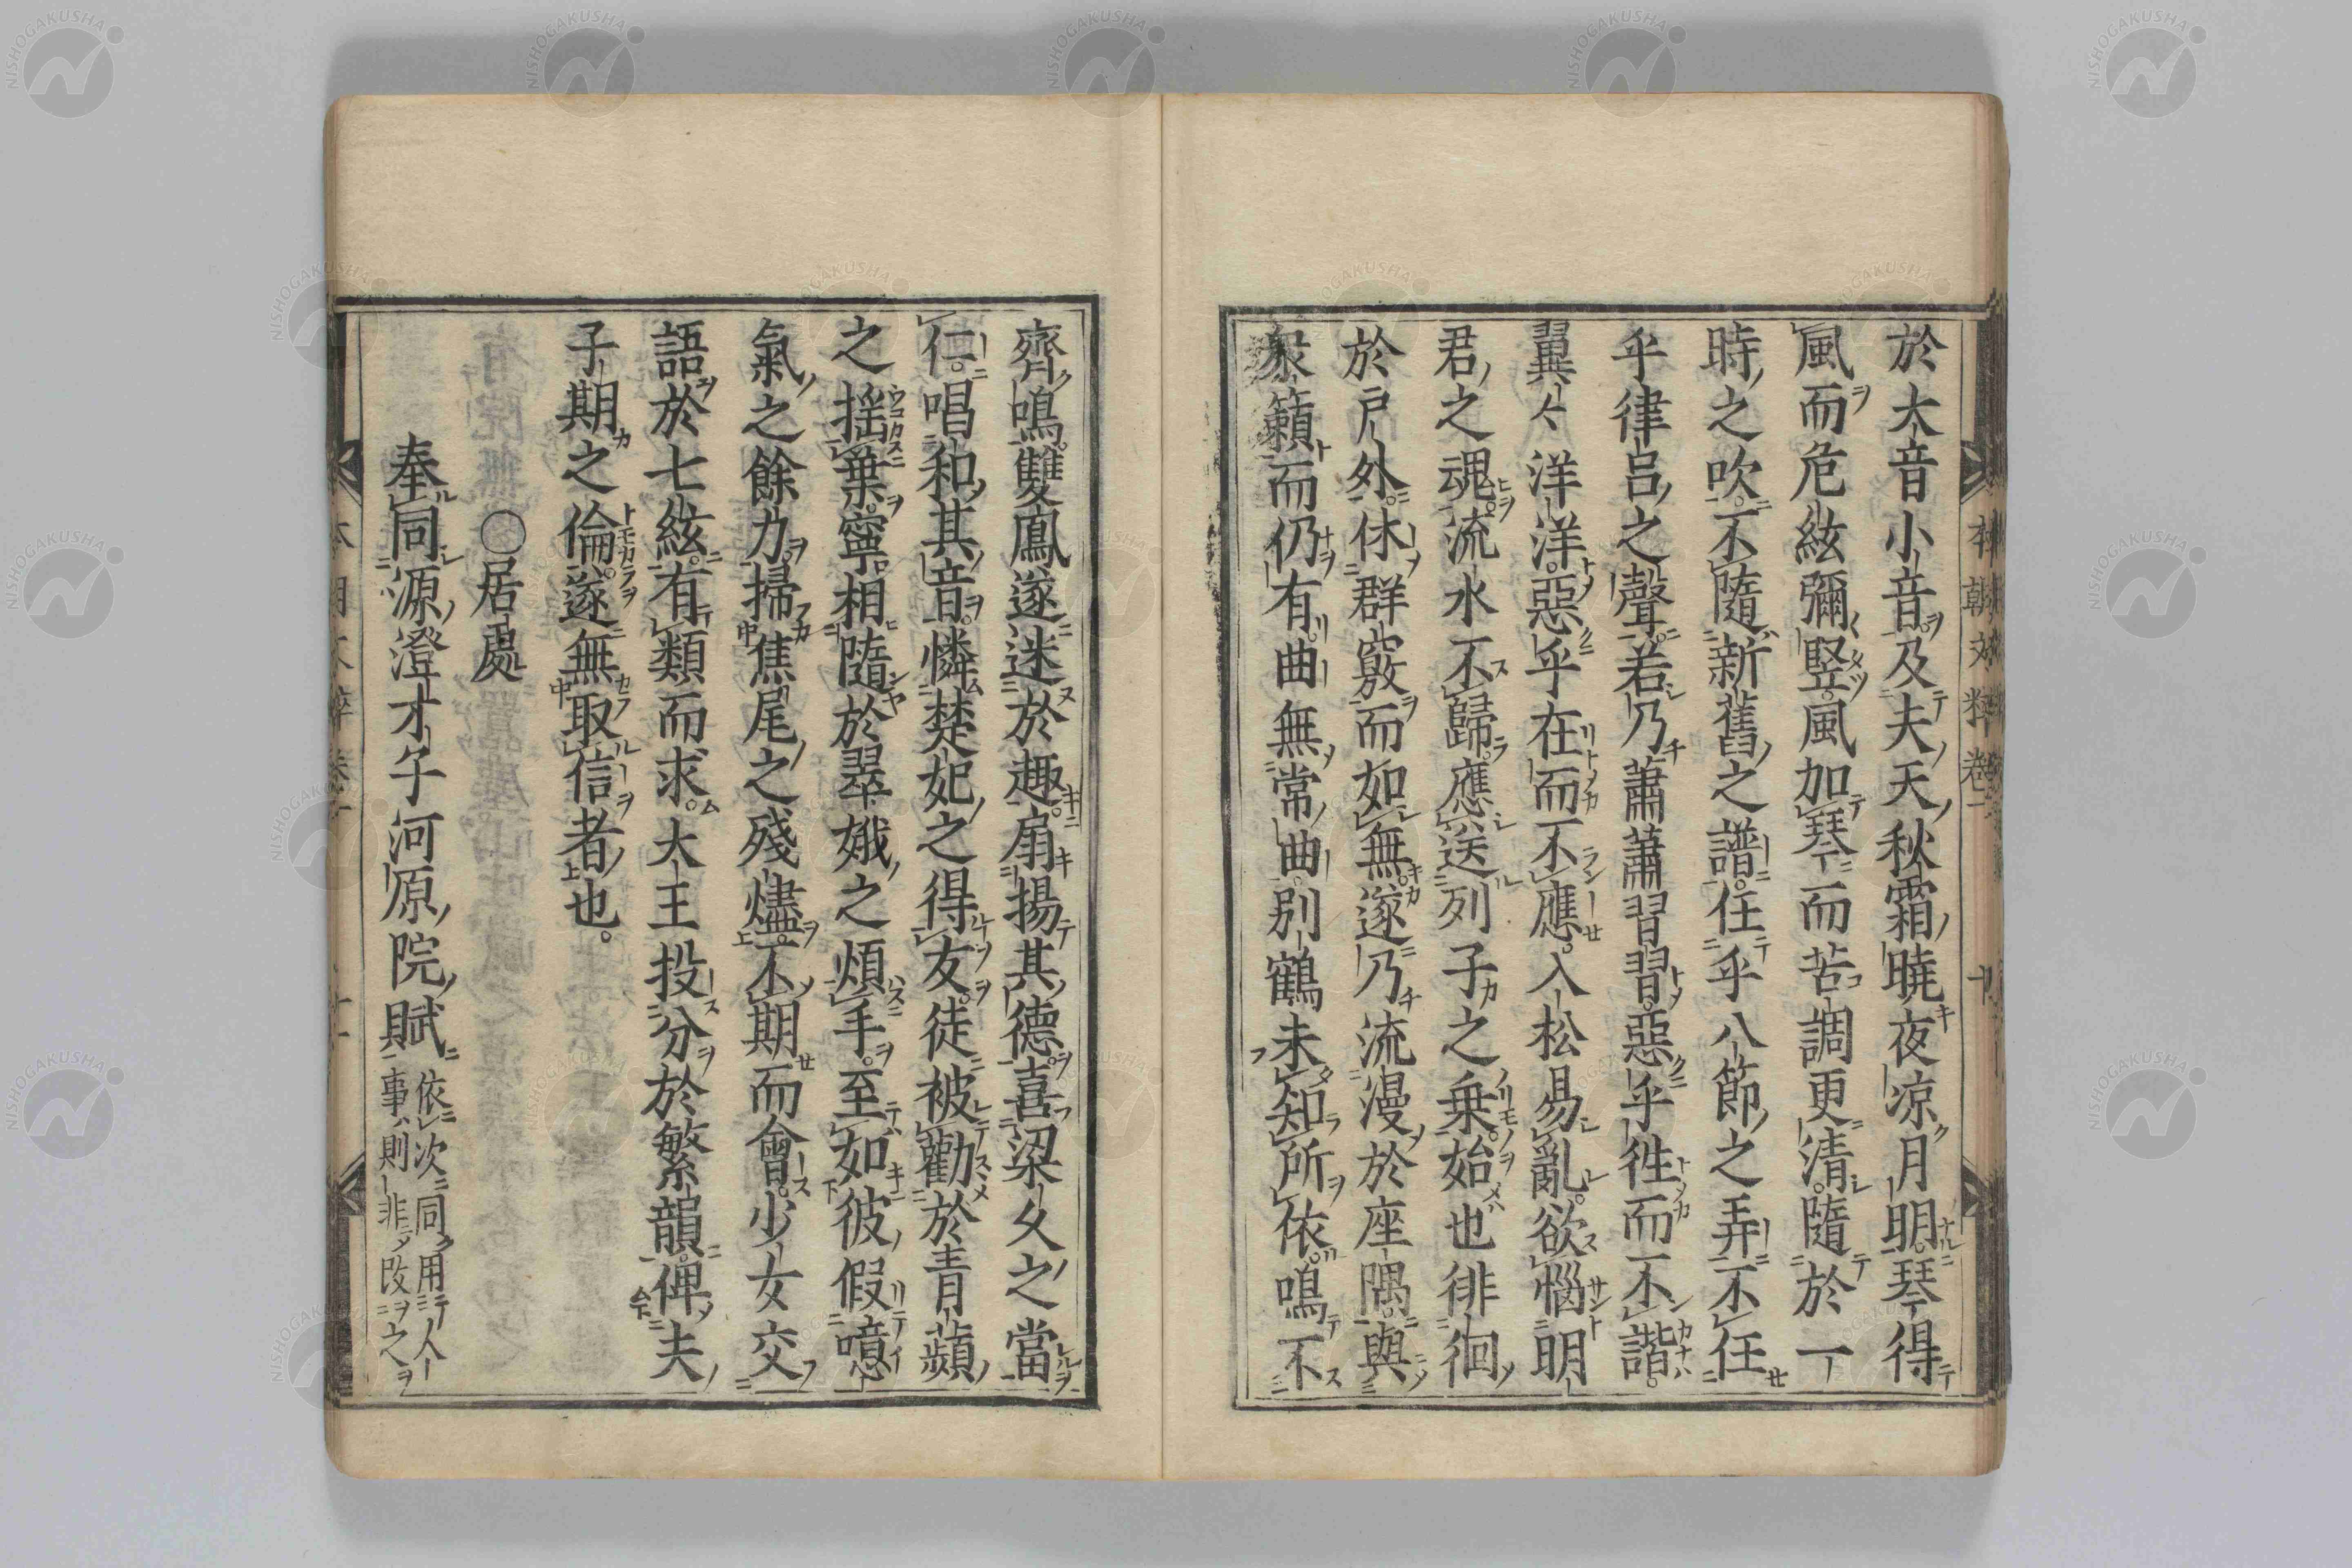 於大音小音及夫天秋霜曉夜凉月明琴得
風而危絃彌竪風加琴而苦調更清隨於一
時之吹不隨新舊之譜任乎八節之弄不任
乎律呂之聲若乃蕭蕭習習惡乎徃而不諧
翼々洋洋惡乎在而不應入松易亂欲惱明
君之魂流水不歸應送列子之乗始也徘徊
於戸外休群竅而如無遂乃流漫於座隅與
衆籟而仍有曲無常曲別鶴未知所依鳴不
齊鳴雙鳳遂迷於趣扇揚其德喜梁父之當
仁唱和其音憐楚妃之得友徒被勸於青蘋
之揺葉寧相隨於翠娥之煩手至如彼假噫
氣之餘力掃焦尾之殘燼不期而會少女交
語於七絃有類而求大王投分於繁韻俾夫
子期之倫遂無取信者也。
〇居處
奉同源澄才子河原院賦
依次同用人
事則非改之
本朝文粹卷一 十
NISHOGAKUSHA